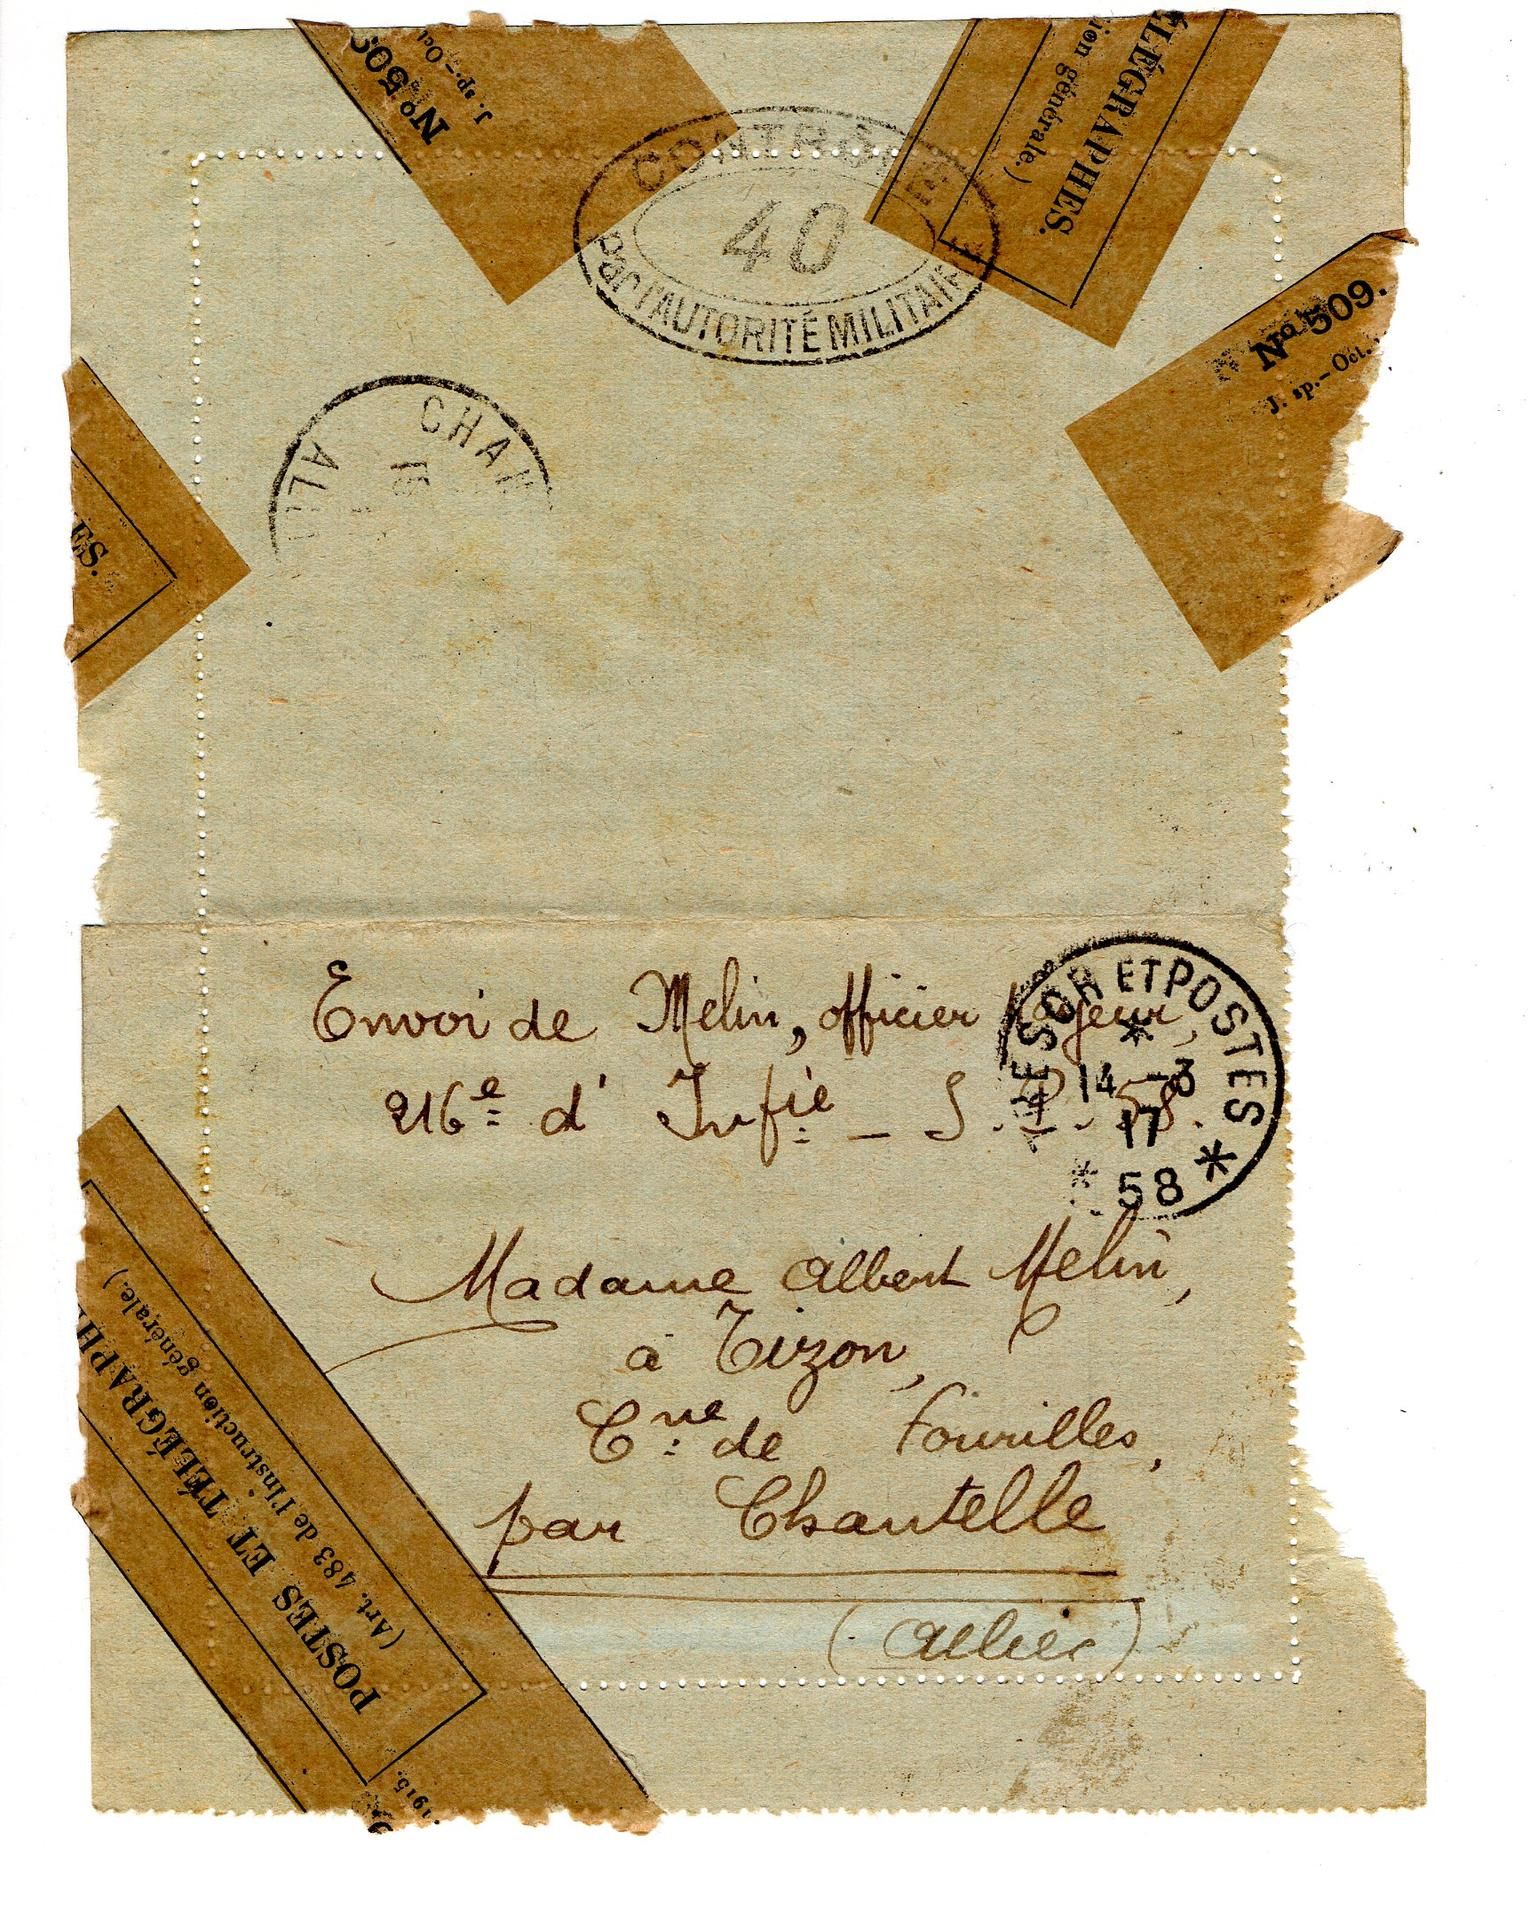 Nº 509
J. sp.-Oct
ÉLÉGRAPHES.
ion générale.)
CONTRÔLE
40
Par l'AUTORITÉ MILITAIRE
Nº 509.
J. sp.-Oct.
CHAN
ALL
15
ES.
Envoi de Melin, officier Mageur,
216e d' Infie - S. P. 58.
TRESOR ET POSTES
14 -3
17
58
Madame Albert Melin,
à Tizon,
Cne de Fourilles,
par Chantelle
(Allier)
POSTES ET TÉLÉGRAPH
(Art. 483 de l'Instruction générale.)
1915.